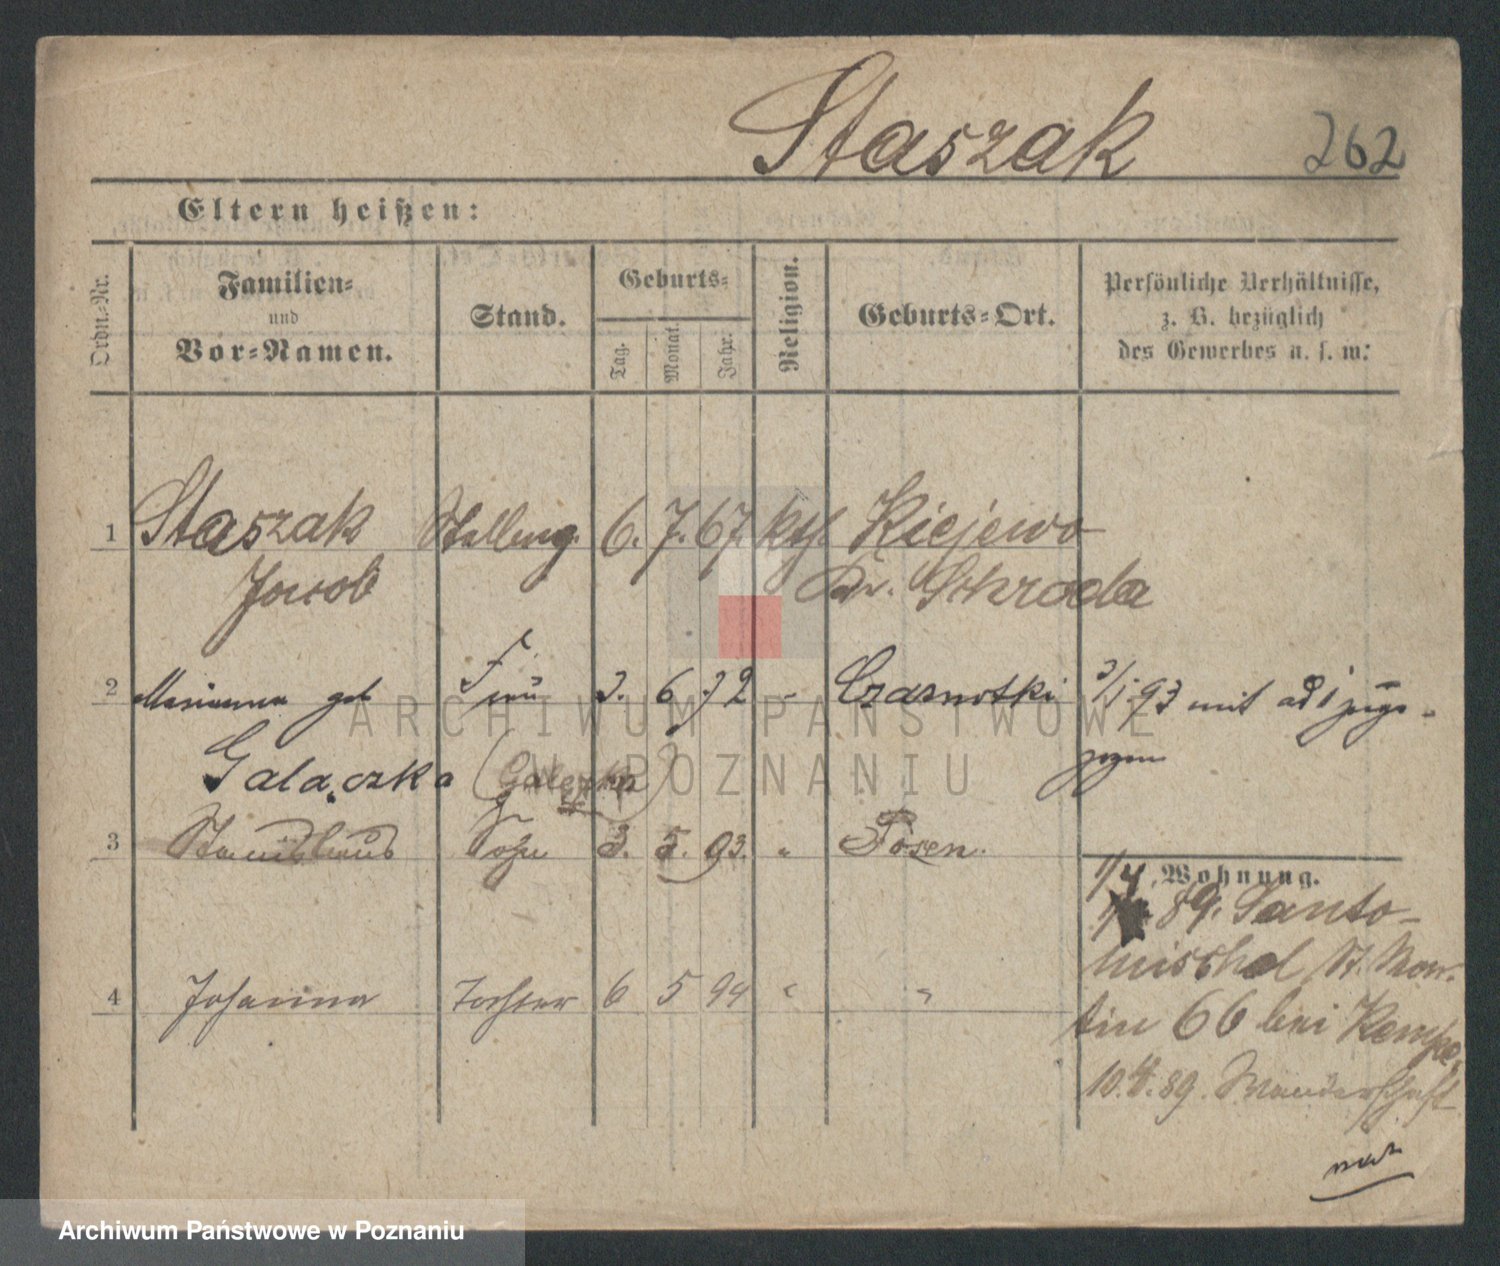 Staszak 262
Eltern heißen:
Ordn.-Nr.
Familien-
und
Vor-Namen.
Stand.
Geburts-
Tag.
Monat.
Jahr.
Religion.
Geburts-Ort.
Persönliche Verhältnisse,
z. B. bezüglich
des Gewerbes u. s. w.
1 Staszak 6. 7. 67. kth. Kiejewo
Jacob Kr. Schroda
2 Marianna geb Frau 3. 6 72 Czarnotki 3/1. 93 mit zuge-
Galaczka zogen
3 Stanislaus Sohn 3. 5. 93. " Posen.
Wohnung.
1/4 89. Santo-
mischel St. Mar-
4 Johanna Tochter 6 5 94 " "
tin 66 bei Kempe.
10.4.89. Wanderschaft
ARCHIWUM PAŃSTWOWE
W POZNANIU
Archiwum Państwowe w Poznaniu